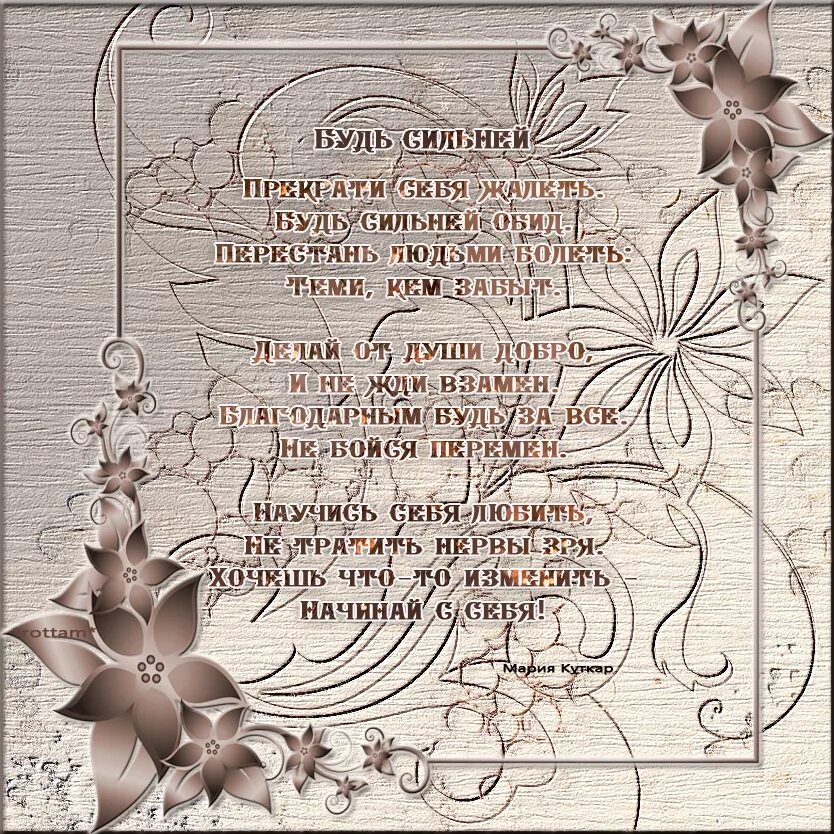 Будь сильней
Прекрати себя жалеть.
Будь сильней обид.
Перестань людьми болеть:
Теми, кем забыт.
Делай от души добро,
И не жди взамен.
Благодарным будь за все.
Не бойся перемен.
Научись себя любить,
Не тратить нервы зря.
Хочешь что-то изменить –
Начинай с себя!
Мария Куткар
rottam*